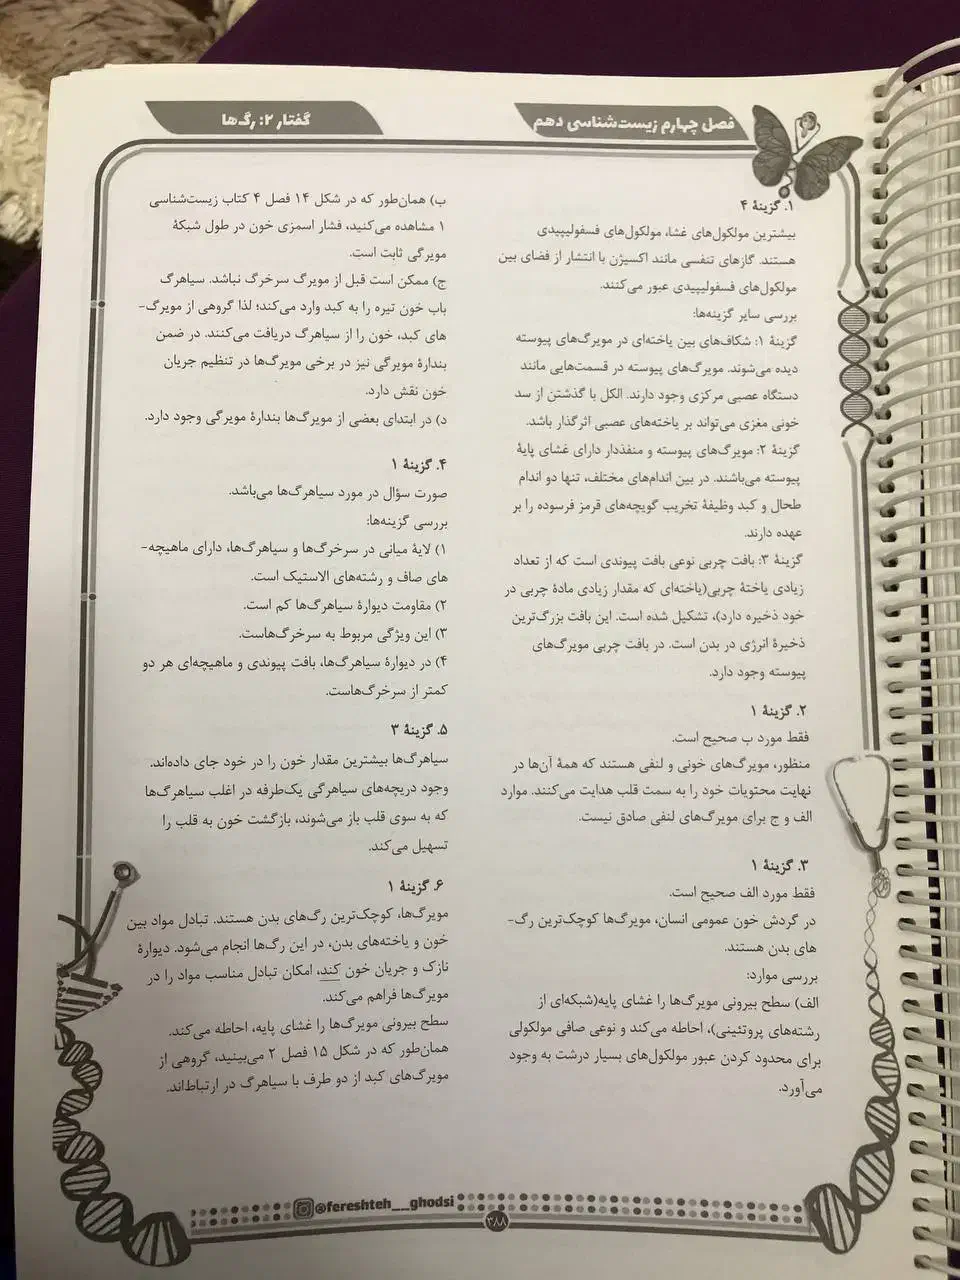 فصل چهارم زیست‌شناسی دهم
گفتار ۲: رگ‌ها
۱. گزینهٔ ۴
بیشترین مولکول‌های غشا، مولکول‌های فسفولیپیدی
هستند. گازهای تنفسی مانند اکسیژن با انتشار از فضای بین
مولکول‌های فسفولیپیدی عبور می‌کنند.
بررسی سایر گزینه‌ها:
گزینهٔ ۱: شکاف‌های بین یاخته‌ای در مویرگ‌های پیوسته
دیده می‌شوند. مویرگ‌های پیوسته در قسمت‌هایی مانند
دستگاه عصبی مرکزی وجود دارند. الکل با گذشتن از سد
خونی مغزی می‌تواند بر یاخته‌های عصبی اثرگذار باشد.
گزینهٔ ۲: مویرگ‌های پیوسته و منفذدار دارای غشای پایهٔ
پیوسته می‌باشند. در بین اندام‌های مختلف، تنها دو اندام
طحال و کبد وظیفهٔ تخریب گویچه‌های قرمز فرسوده را بر
عهده دارند.
گزینهٔ ۳: بافت چربی نوعی بافت پیوندی است که از تعداد
زیادی یاختهٔ چربی(یاخته‌ای که مقدار زیادی مادهٔ چربی در
خود ذخیره دارد)، تشکیل شده است. این بافت بزرگ‌ترین
ذخیرهٔ انرژی در بدن است. در بافت چربی مویرگ‌های
پیوسته وجود دارد.
۲. گزینهٔ ۱
فقط مورد ب صحیح است.
منظور، مویرگ‌های خونی و لنفی هستند که همهٔ آن‌ها در
نهایت محتویات خود را به سمت قلب هدایت می‌کنند. موارد
الف و ج برای مویرگ‌های لنفی صادق نیست.
۳. گزینهٔ ۱
فقط مورد الف صحیح است.
در گردش خون عمومی انسان، مویرگ‌ها کوچک‌ترین رگ-
های بدن هستند.
بررسی موارد:
الف) سطح بیرونی مویرگ‌ها را غشای پایه(شبکه‌ای از
رشته‌های پروتئینی)، احاطه می‌کند و نوعی صافی مولکولی
برای محدود کردن عبور مولکول‌های بسیار درشت به وجود
می‌آورد.
ب) همان‌طور که در شکل ۱۴ فصل ۴ کتاب زیست‌شناسی
۱ مشاهده می‌کنید، فشار اسمزی خون در طول شبکهٔ
مویرگی ثابت است.
ج) ممکن است قبل از مویرگ سرخرگ نباشد. سیاهرگ
باب خون تیره را به کبد وارد می‌کند؛ لذا گروهی از مویرگ-
های کبد، خون را از سیاهرگ دریافت می‌کنند. در ضمن
بندارهٔ مویرگی نیز در برخی مویرگ‌ها در تنظیم جریان
خون نقش دارد.
د) در ابتدای بعضی از مویرگ‌ها بندارهٔ مویرگی وجود دارد.
۴. گزینهٔ ۱
صورت سؤال در مورد سیاهرگ‌ها می‌باشد.
بررسی گزینه‌ها:
۱) لایهٔ میانی در سرخرگ‌ها و سیاهرگ‌ها، دارای ماهیچه-
های صاف و رشته‌های الاستیک است.
۲) مقاومت دیوارهٔ سیاهرگ‌ها کم است.
۳) این ویژگی مربوط به سرخرگ‌هاست.
۴) در دیوارهٔ سیاهرگ‌ها، بافت پیوندی و ماهیچه‌ای هر دو
کمتر از سرخرگ‌هاست.
۵. گزینهٔ ۳
سیاهرگ‌ها بیشترین مقدار خون را در خود جای داده‌اند.
وجود دریچه‌های سیاهرگی یک‌طرفه در اغلب سیاهرگ‌ها
که به سوی قلب باز می‌شوند، بازگشت خون به قلب را
تسهیل می‌کند.
۶. گزینهٔ ۱
مویرگ‌ها، کوچک‌ترین رگ‌های بدن هستند. تبادل مواد بین
خون و یاخته‌های بدن، در این رگ‌ها انجام می‌شود. دیوارهٔ
نازک و جریان خون کند، امکان تبادل مناسب مواد را در
مویرگ‌ها فراهم می‌کند.
سطح بیرونی مویرگ‌ها را غشای پایه، احاطه می‌کند.
همان‌طور که در شکل ۱۵ فصل ۲ می‌بینید، گروهی از
مویرگ‌های کبد از دو طرف با سیاهرگ در ارتباط‌اند.
@fereshteh__ghodsi
۳۸۸